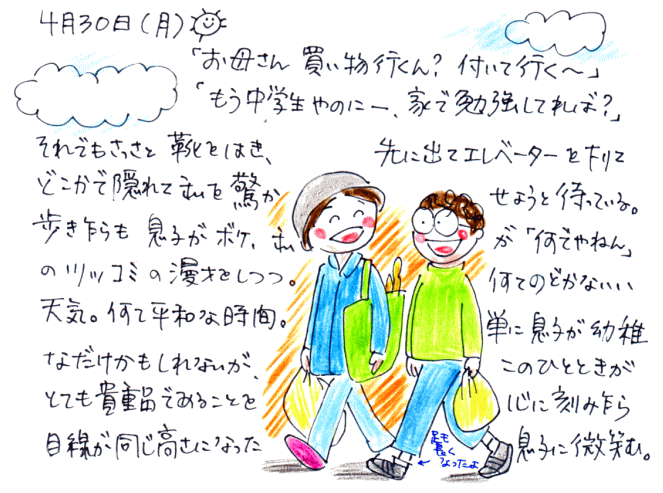 4月30日(月)
「お母さん 買い物行くん? 付いて行く～」
「もう中学生やのにー、家で勉強してれば?」
それでもさっさと 靴をはき、 先に出てエレベーターを下りて
どこかで隠れて私を驚か せようと待っている。
歩き乍らも 息子がボケ、私 が「何でやねん」
のツッコミの漫才をしつつ。 何てのどかないい
天気。何て平和な時間。 単に息子が幼稚
なだけかもしれないが、 このひとときが
とても貴重品であることを 心に刻み乍ら
目線が同じ高さになった 息子に微笑む。
足も
長く
なったよ